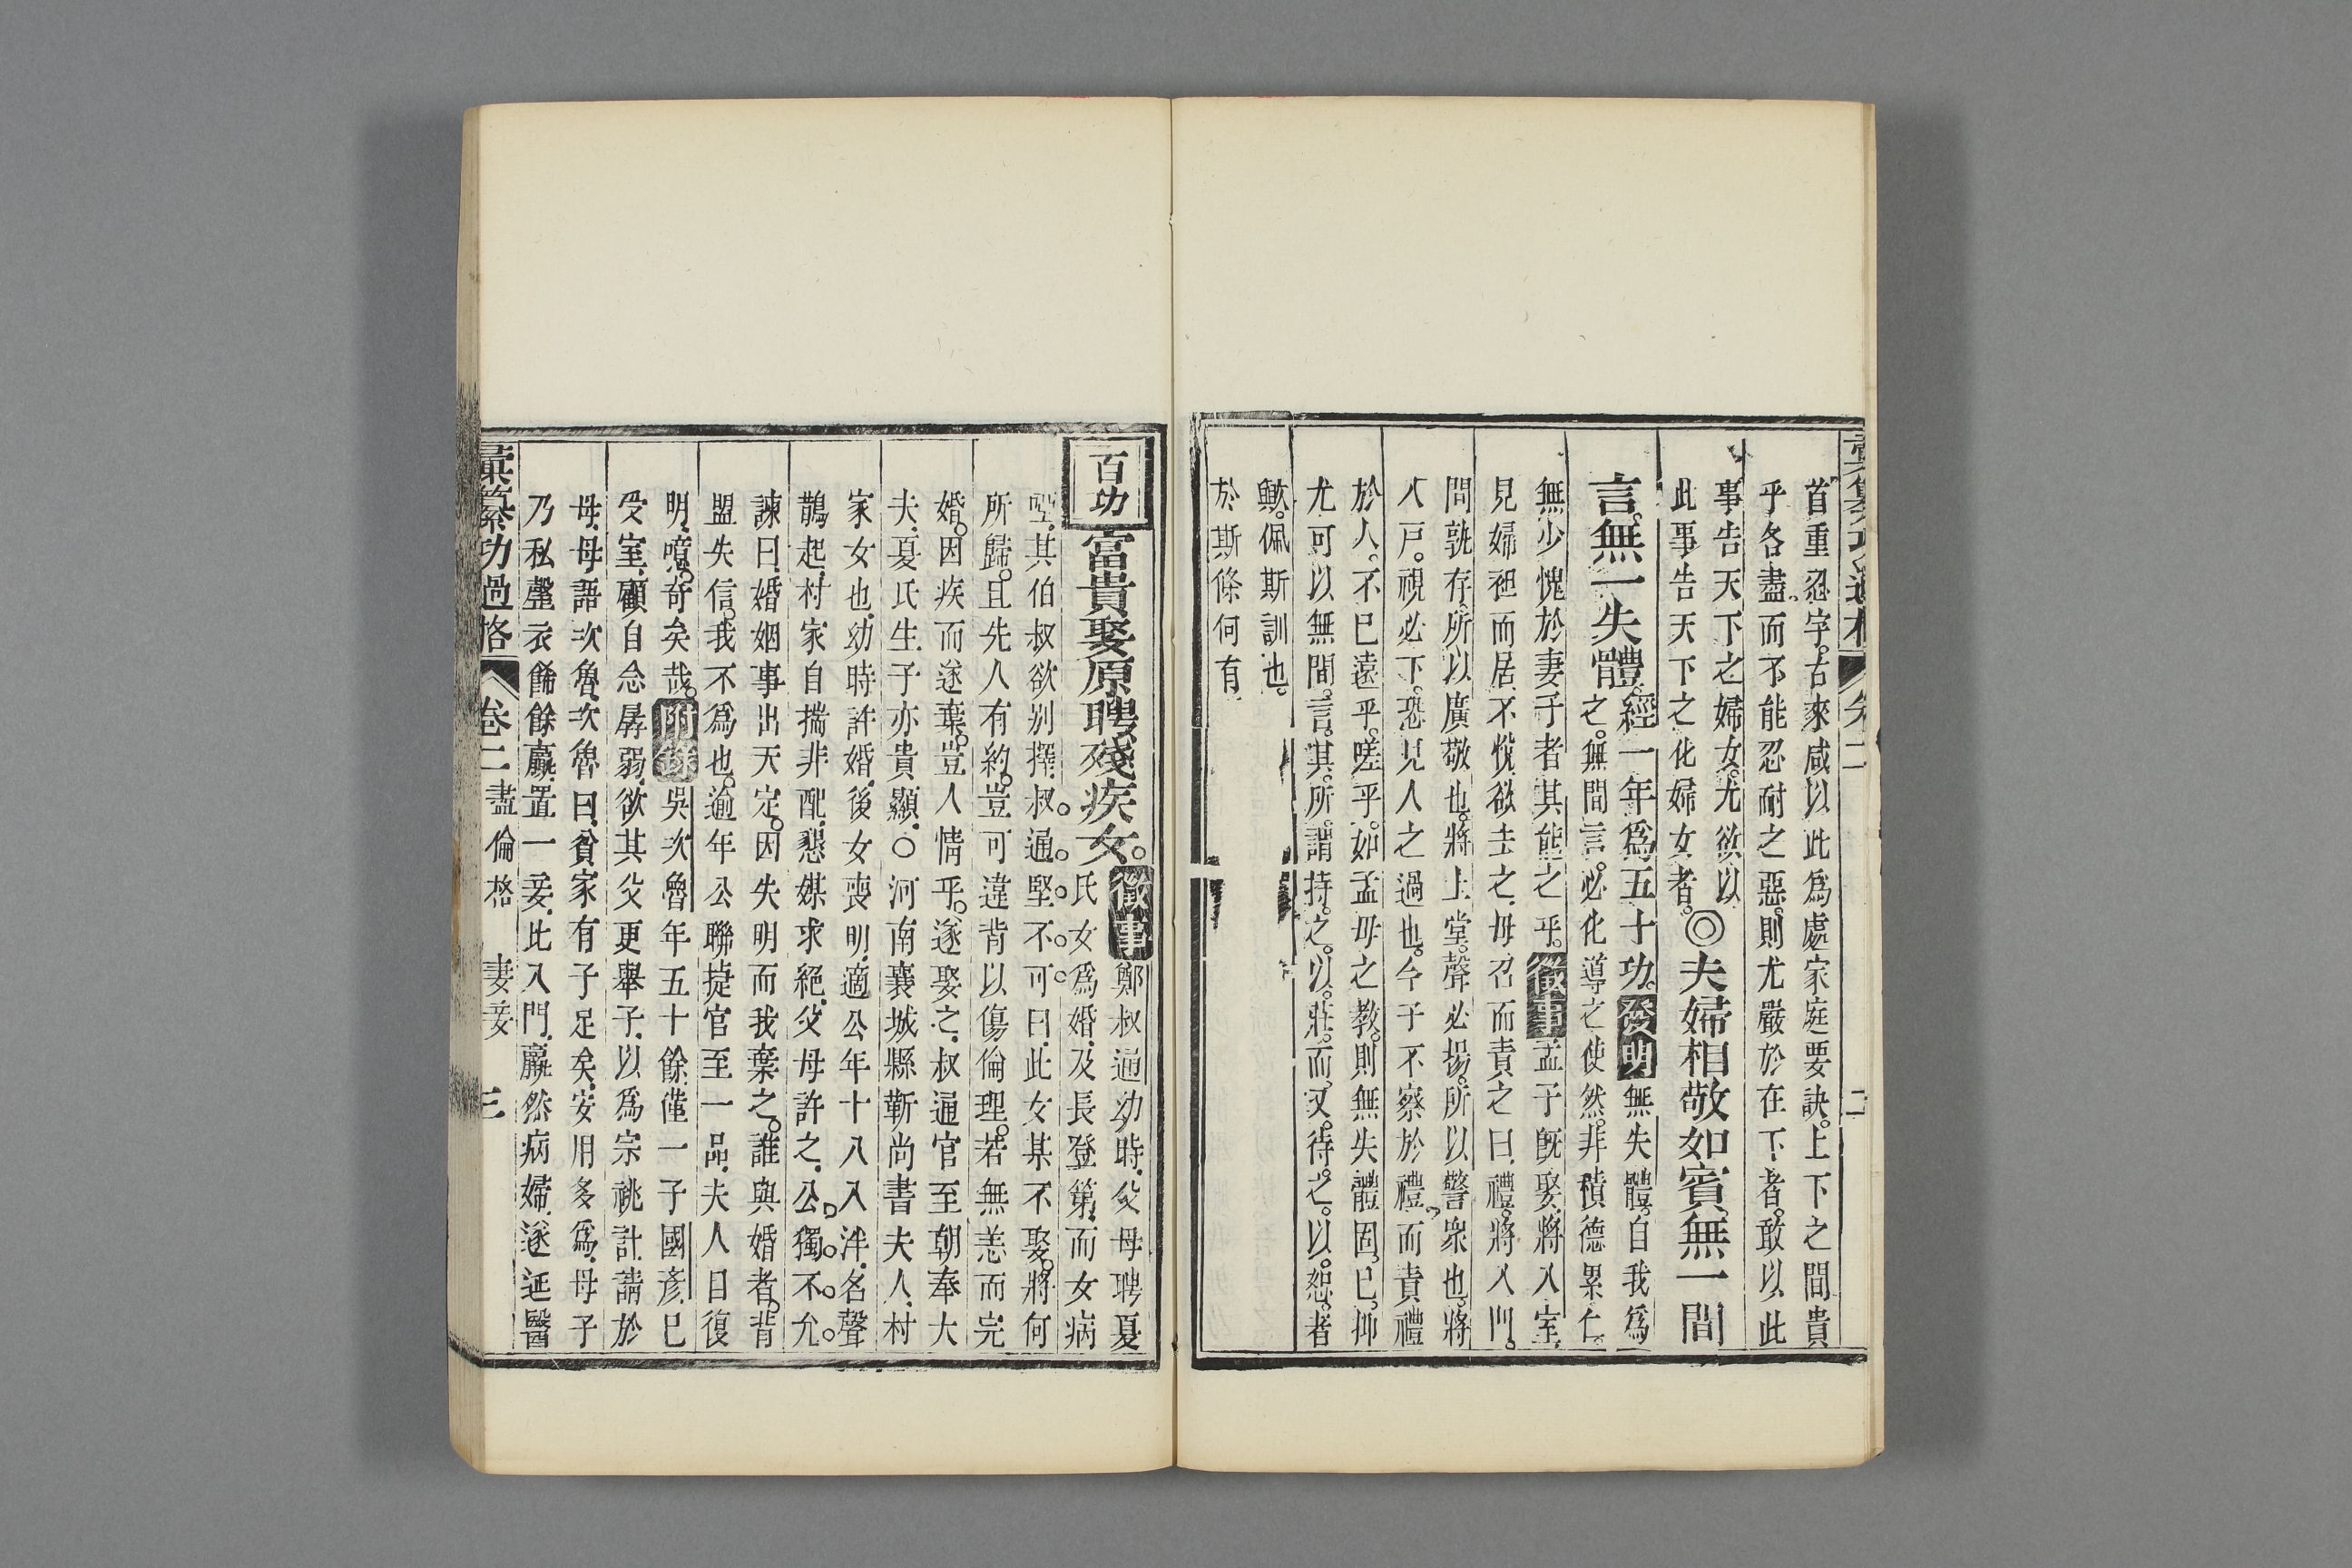 彙纂功過格 卷二 二
首重忍字。古來咸以此爲處家庭要訣。上下之間貴
乎各盡。而不能忍耐之惡。則尤嚴於在下者。敢以此
事告天下之婦女。尤欲以
此事告天下之化婦女者。
◎夫婦相敬如賓。無一間
言。無一失體。
經一年爲五十功。發明無失體。自我爲
之。無間言。必化導之使然。非積德累仁。
無少愧於妻子者。其能之乎。徵事孟子既娶。將入室。
見婦袒而居。不悅。欲去之。母召而責之曰。禮。將入門。
問孰存。所以廣敬也。將上堂。聲必揚。所以警衆也。將
入戶。視必下。恐見人之過也。今子不察於禮。而責禮
於人。不已遠乎。嗟乎。如孟母之教。則無失體固已。抑
尤可以無間言。其所謂持之以莊。而又待之以恕者
歟。佩斯訓也。
於斯條何有
百功 富貴娶原聘殘疾女。
徵事鄭叔通幼時。父母聘夏
氏女爲婚。及長登第。而女病
啞。其伯叔欲别擇。叔通堅不可曰。此女某不娶。將何
所歸。且先人有約。豈可違背以傷倫理。若無恙而完
婚。因疾而遂棄。豈人情乎。遂娶之。叔通官至朝奉大
夫。夏氏生子亦貴顯。○河南襄城縣靳尚書夫人。村
家女也。幼時許婚。後女喪明。適公年十八入泮。名聲
鵲起。村家自揣非配。懇媒求絕。父母許之。公獨不允
諫曰。婚姻事出天定。因失明而我棄之。誰與婚者。背
盟失信。我不爲也。逾年公聯捷官至一品。夫人目復
明。噫。奇矣哉。附錄吳次魯年五十餘。僅一子國彥。已
受室。顧自念孱弱。欲其父更舉子。以爲宗祧計。請於
母。母語次魯。次魯曰。貧家有子足矣。安用多爲。母子
乃私罄衣餙餘羸。置一妾。此入門。羸然病婦。遂延醫
彙纂功過格 卷二 盡倫格 妻妾 三